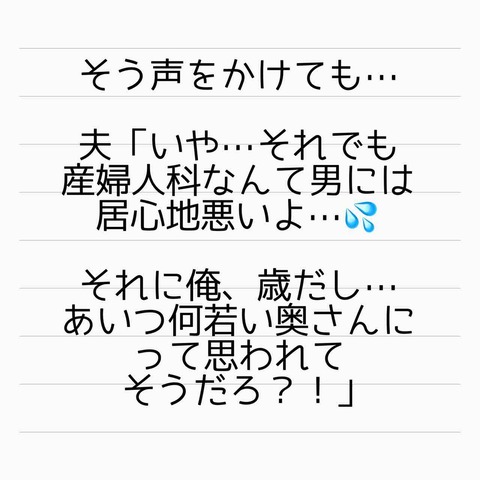 そう声をかけても…
夫「いや…それでも
産婦人科なんて男には
居心地悪いよ…💦
それに俺、歳だし…
あいつ何若い奥さんに
って思われて
そうだろ？！」